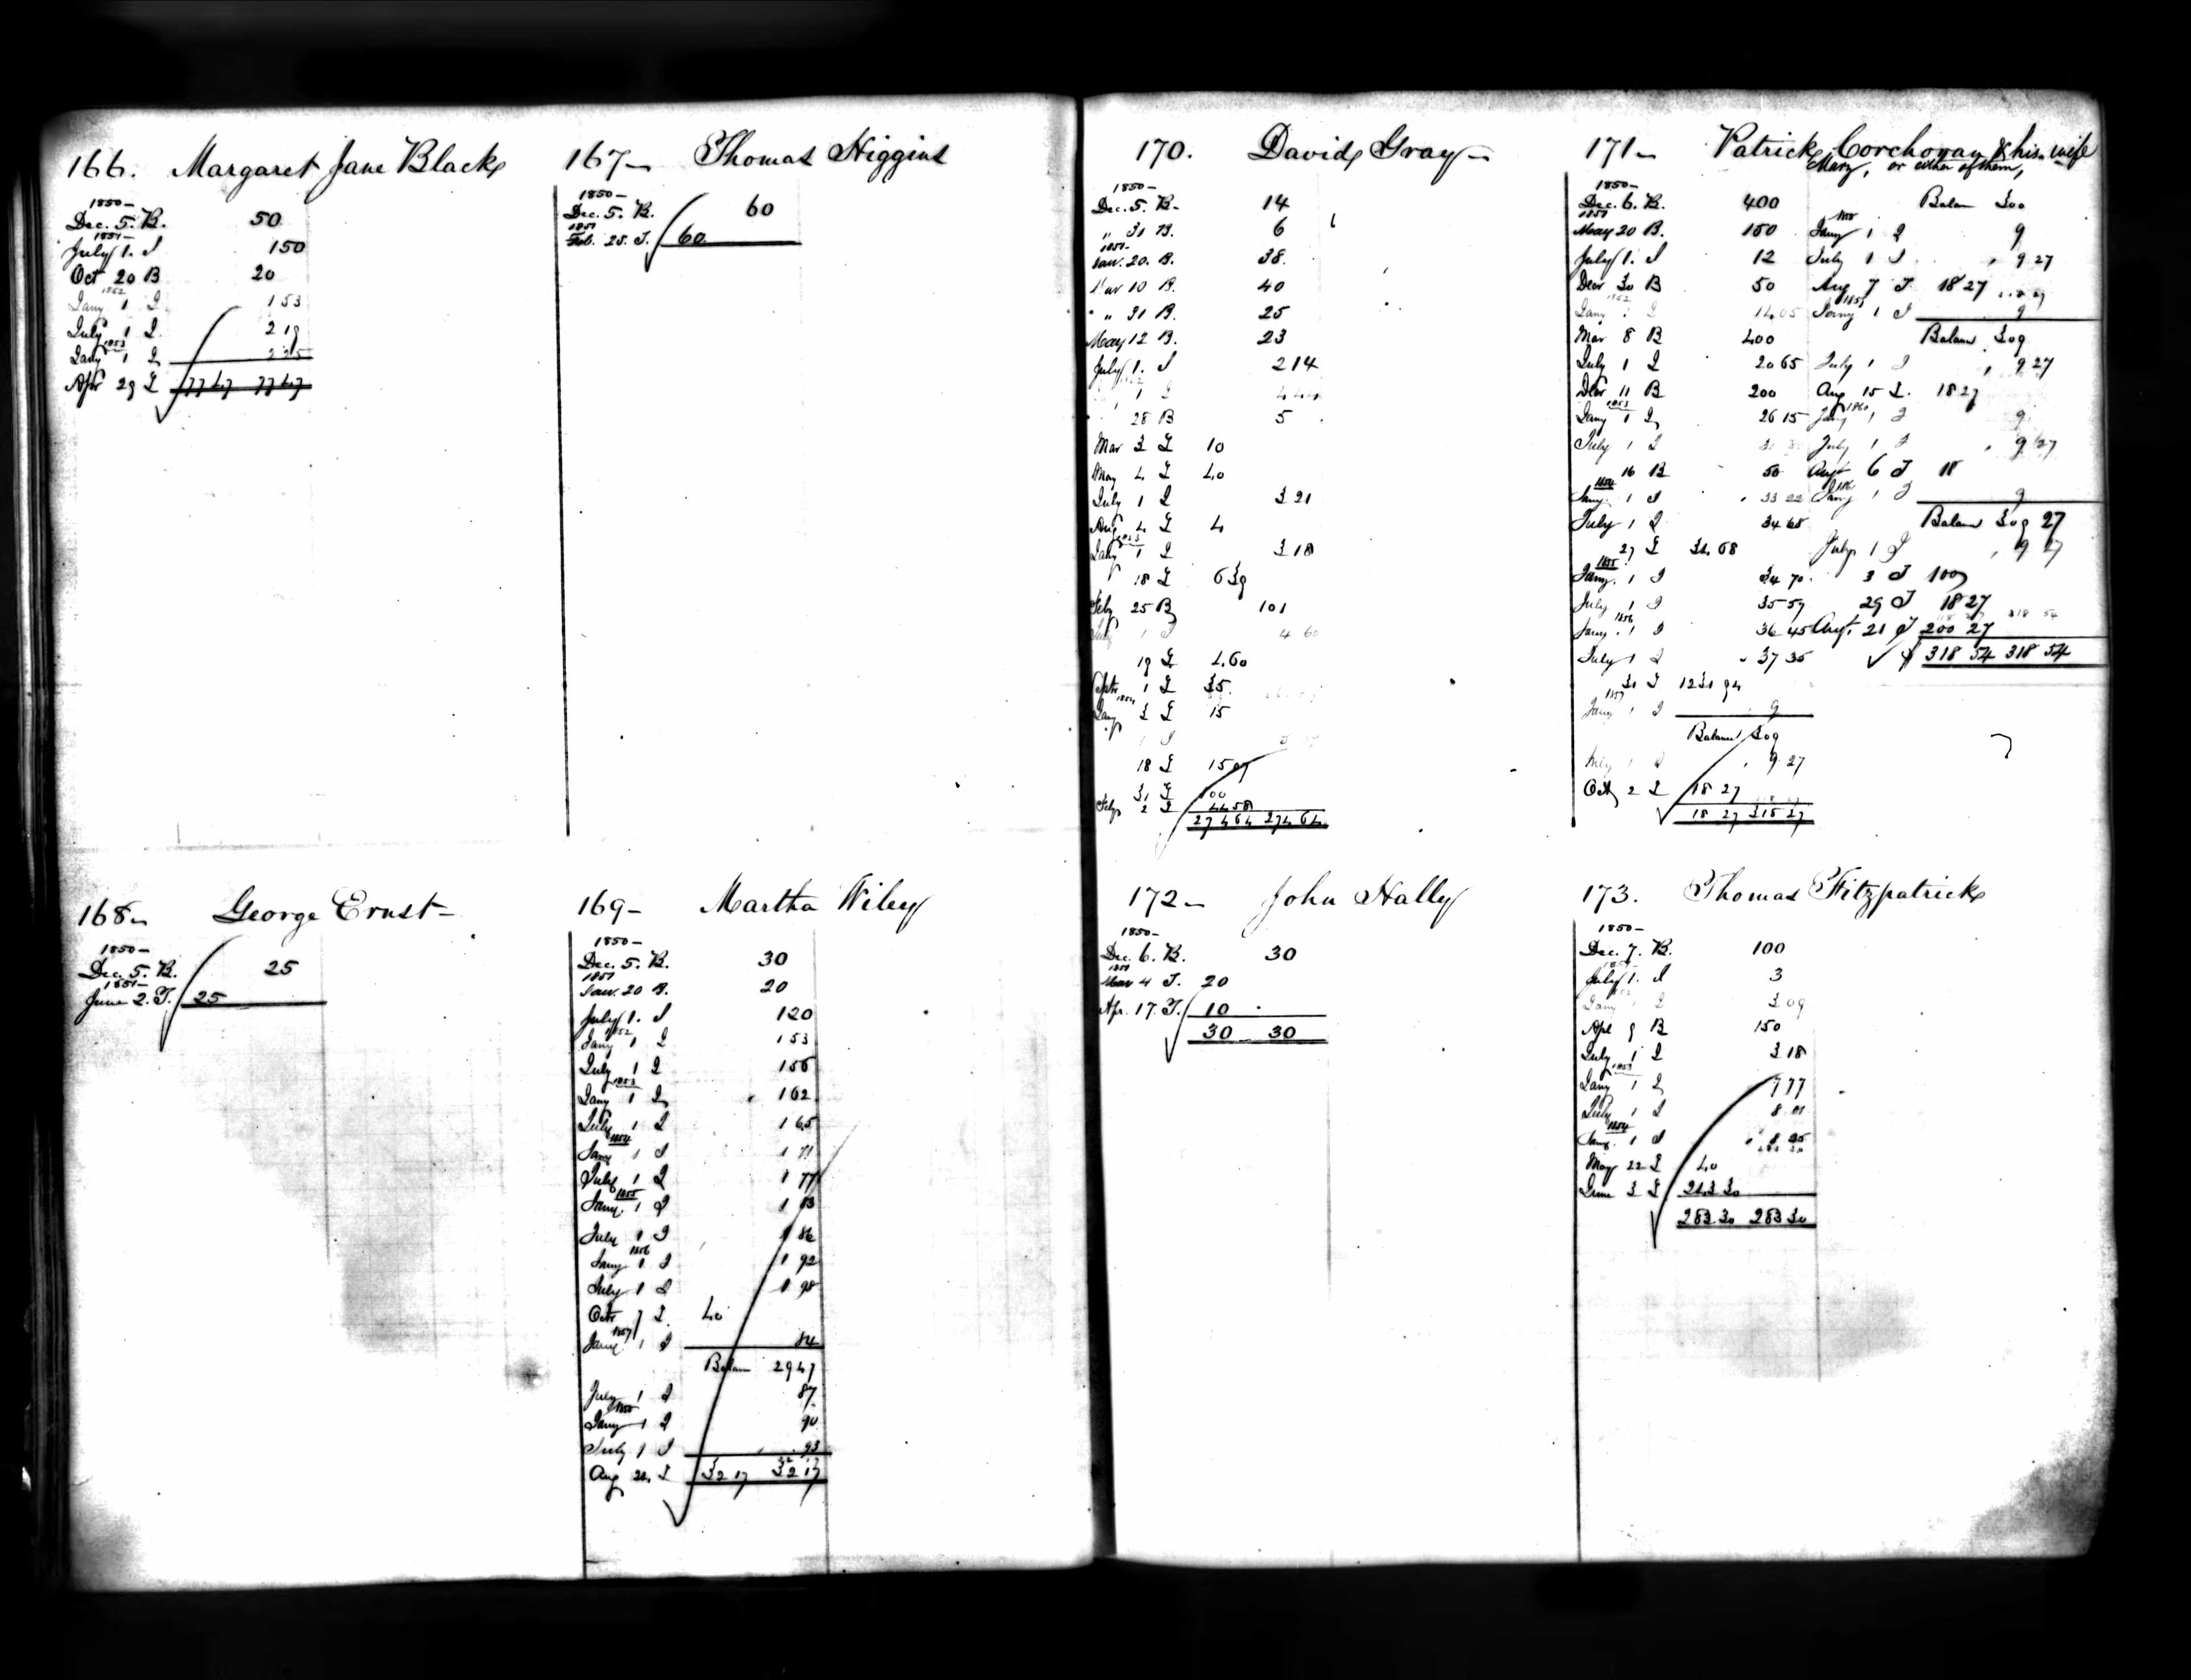 166. Margaret Jane Black
1850-
Dec. 5. B. 50
1851-
July 1. I 150
Oct 20 B 20
1852
Jany 1 I 153
July 1 I 219
1853
Jany 1 I 225
Apr 29 T 77 47 77 47
167- Thomas Higgins
1850-
Dec. 5. B. 60
1851
Feb. 25. T. 60
168- George Ernst-
1850-
Dec. 5. B. 25
1851-
June 2. T. 25
169- Martha Wiley
1850-
Dec. 5. B. 30
1851
Jan. 20 B. 20
July 1. I 120
1852
Jany 1 I 153
July 1 I 156
1853
Jany 1 I 162
July 1 I 165
1854
Jany 1 I 171
July 1 I 1 77
1855
Jany. 1 I 1 83
July 1 I 1 86
1856
Jany 1 I 1 92
July 1 I 1 98
Octr 7 T. 40
1857
Jany 1 I 84
Balance 29 47
July 1 I 87
1858
Jany 1 I 90
July 1 I 93
Aug 24 T 32 17 32 17
170. David Gray-
1850-
Dec. 5. B. 14
" 31 B. 6
1851-
Jan. 20. B. 38
Mar 10 B. 40
" 31 B. 25
May 12 B. 23
July 1. I 214
1 I 444
28 B 5
Mar 3 T 10
May 4 T 40
July 1 I 3 21
Aug 4 T 4
1853
Jany 1 I 3 18
18 T 639
Feby 25 B 101
1 I 4 60
19 T 4.60
Septr 1 T 35
1854
Jany 3 T 15
1 I
18 T 15 07
31 T 100
Feby 2 T 44 58
274 64 274 64
171- Patrick Corchoran & his wife
Mary, or either of them,
1850-
Dec. 6. B. 400
1851
May 20 B. 150
July 1. I 12
Decr 30 B 50
1852
Jany 1 I 14 05
Mar 8 B 400
July 1 I 20 65
Decr 11 B 200
1853
Jany 1 I 26 15
July 1 I
16 B 50
1854
Jany. 1 I 33 22
July 1 I 34 68
27 T 34. 68
1855
Jany. 1 I 34 70
July 1 I 35 57
1856
Jany. 1 I 36 45
July 1 I 37 35
31 T 1231 94
1857
Jany 1 I 9
Balance 309
July 1 I 9 27
Oct 2 T 18 27
18 27 318 27
Balan 300
1858
Jany 1 I 9
July 1 I 9 27
Aug 7 T 18 27
1859
Jany 1 I 9
Balance 309
July 1 I 9 27
Aug 15 T. 18 27
1860
Jany 1 I 9
July 1 I 9 27
Augt 6 T 18
1861
Jany 1 I 9
Balance 309 27
July 1 I 9 27
3 T 100
29 T 18 27
318 54
Augt. 21 T 200 27
318 54 318 54
172- John Hally
1850-
Dec. 6. B. 30
1851
Mar 4 T. 20
Apr. 17. T. 10
30 30
173. Thomas Fitzpatrick
1850-
Dec. 7. B. 100
1851-
July 1. I 3
1852
Jany 1 I 3 09
Apl 9 B 150
July 1 I 3 18
1853
Jany 1 I 7 77
July 1 I 8 01
1854
Jany. 1 I 8 25
May 22 T 40
June 3 T 243 30
283 30 283 30